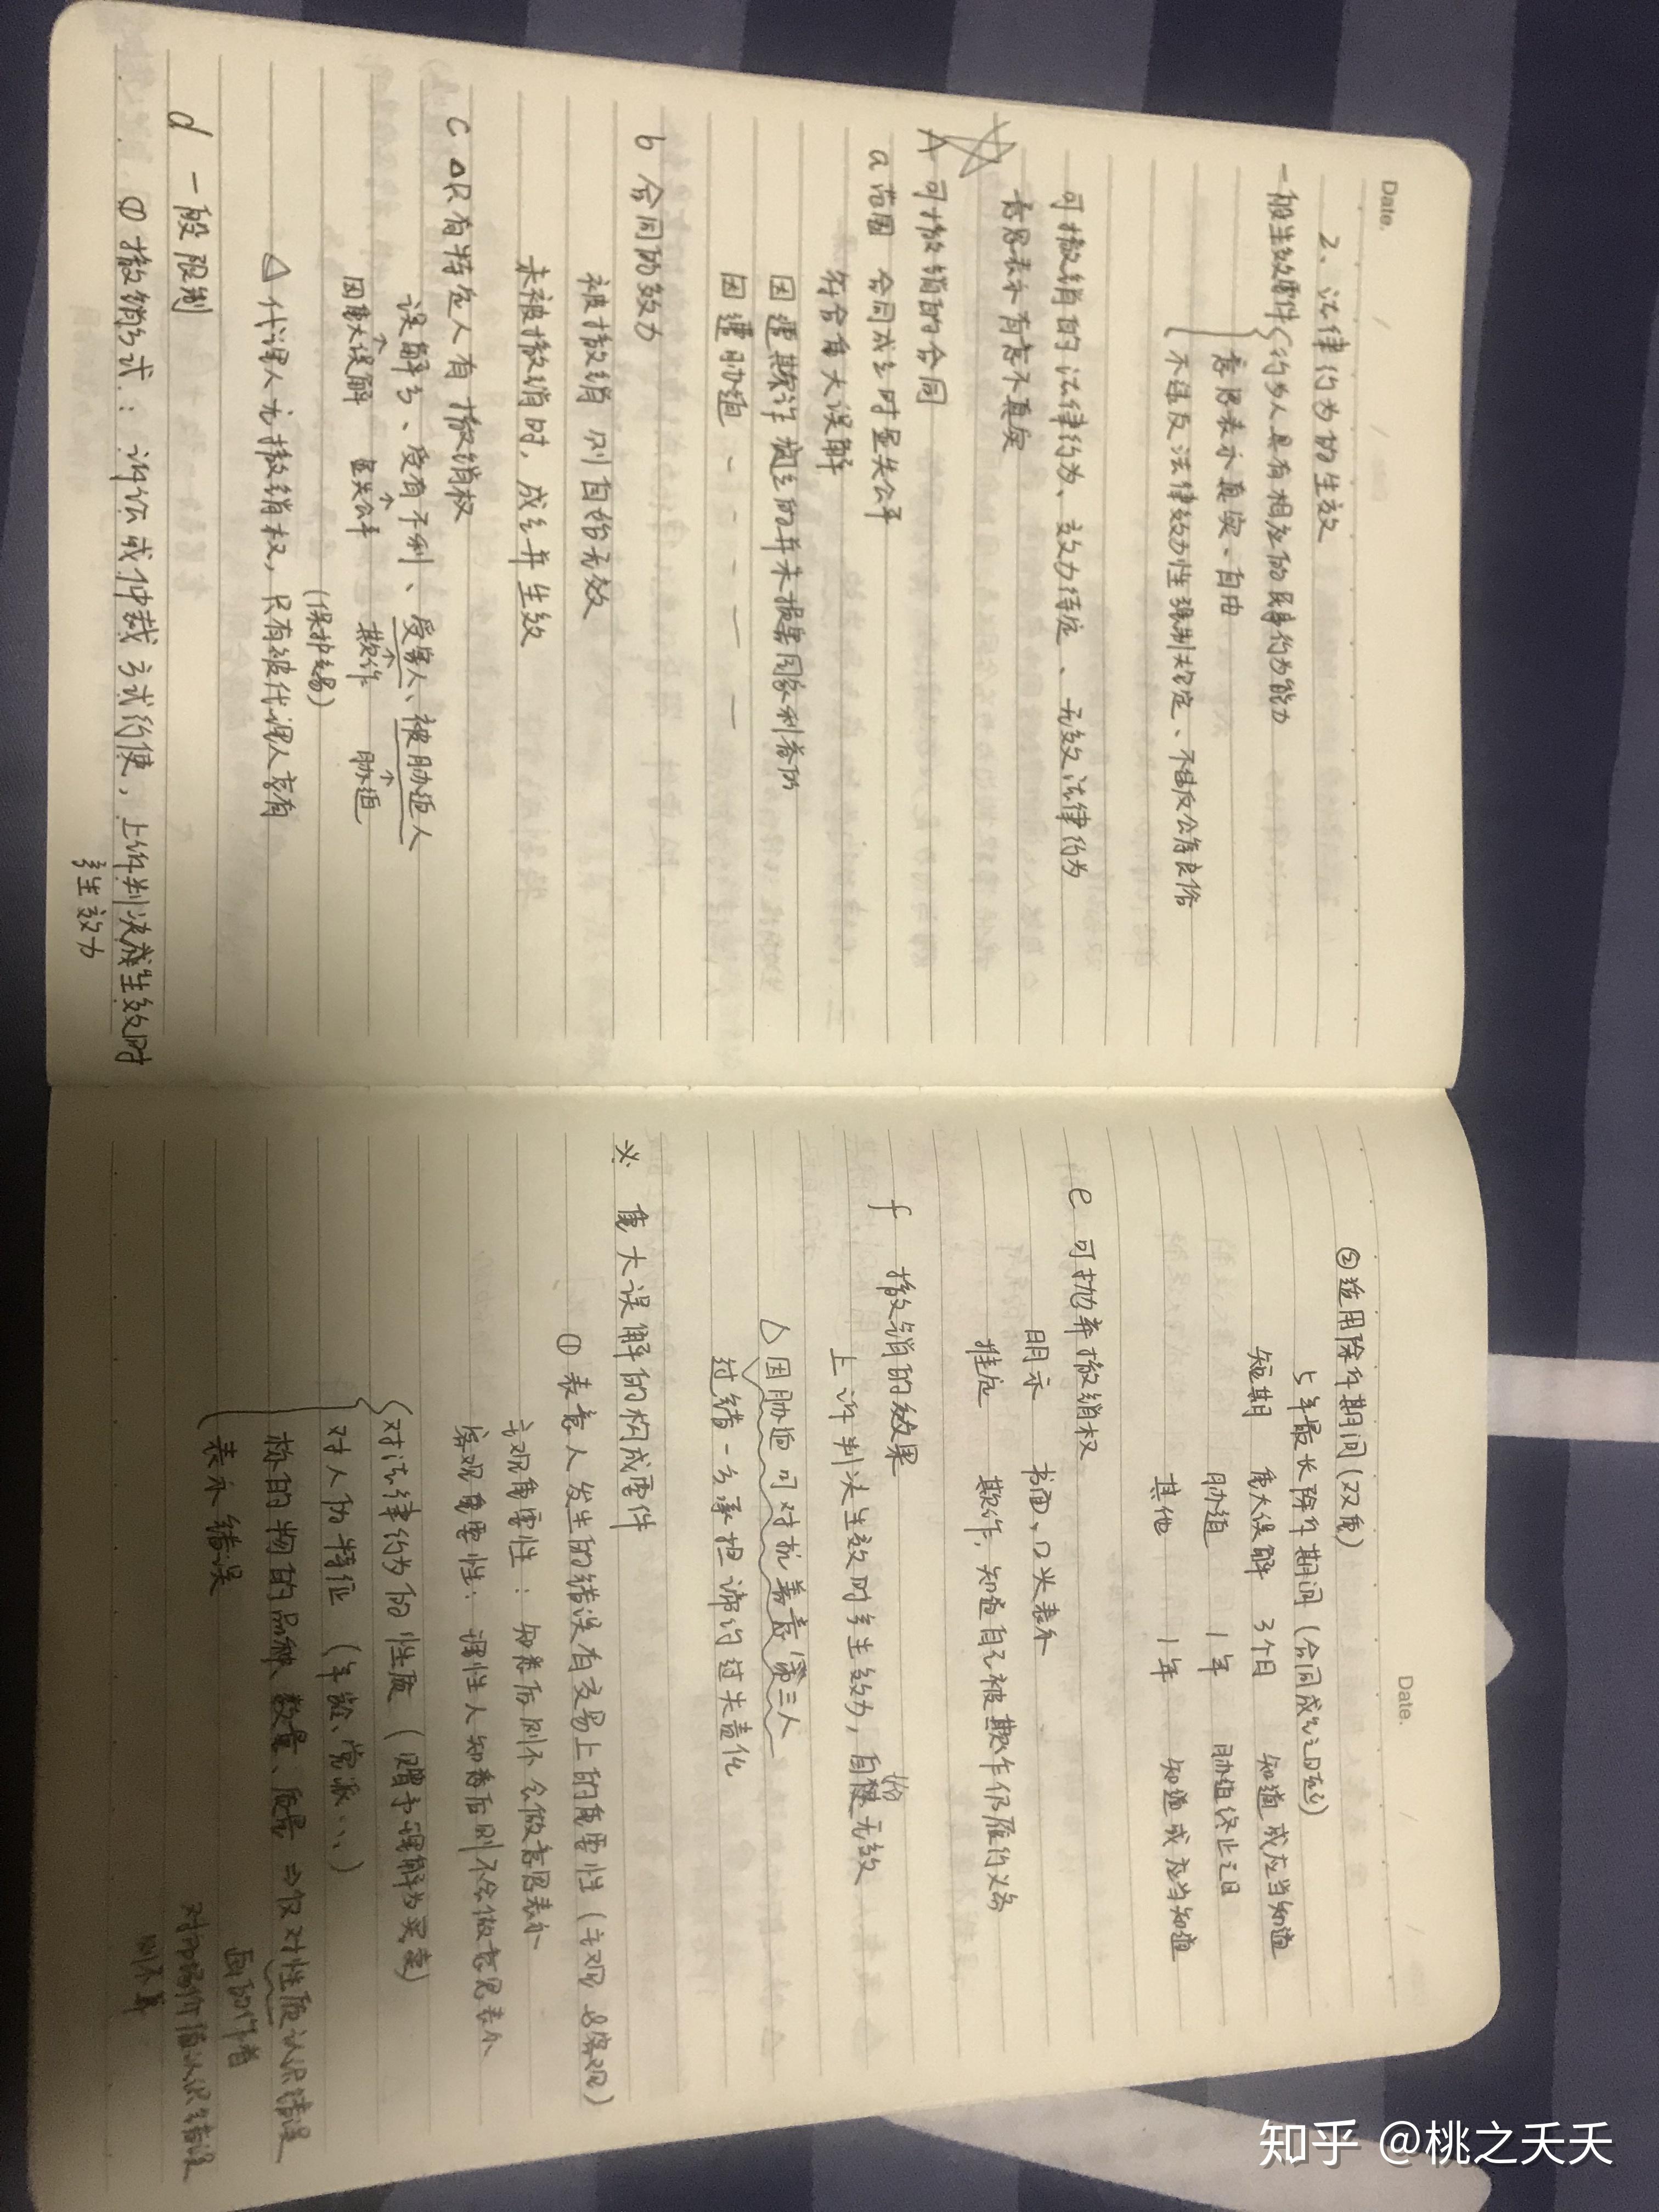 Date.
2、法律行为的生效
一般生效要件 行为人具有相应的民事行为能力
意思表示真实、自由
不违反法律效力性强制规定、不违反公序良俗
可撤销的法律行为、效力待定、无效法律行为
意思表示有意不真实
A 可撤销的合同
a 范围 合同成立时显失公平
符合重大误解
因遭欺诈成立的并未损害国家利益的
因遭胁迫 - - - - -
b 合同的效力
被撤销则自始无效
未被撤销时,成立并生效
c △只有特定人有撤销权
误解方、没有不利、受害人、被胁迫人
因重大误解 显失公平 欺诈 胁迫
(保护交易)
△代理人无撤销权,只有被代理人享有
d 一般限制
① 撤销方式:诉讼或仲裁方式行使,上诉判决或生效时
多生效力
Date.
②适用除斥期间(双重)
5年最长除斥期间(合同成立之日起)
短期 重大误解 3个月 知道或应当知道
胁迫 1年 胁迫终止之日
其他 1年 知道或应当知道
e 可抛弃撤销权
明示 书面,口头表示
推定 欺诈,知道自己被欺诈仍履行义务
f 撤销的效果
上诉判决生效时多生效力,自始无效
△因胁迫可对抗善意第三人
过错一方承担缔约过失责任
※ 重大误解的构成要件
① 表意人发生的错误有交易上的重要性(主观&客观)
主观重要性:知悉后则不会做意思表示
客观重要性:理性人知悉后则不会做意思表示
对法律行为的性质(赠予理解为买卖)
对人的特征(年龄、党派、、、)
标的物的品种、数量、质量 ⇒ 仅对性质认识错误
表示错误
对市场价值认识错误
则不算
知乎 @桃之夭夭